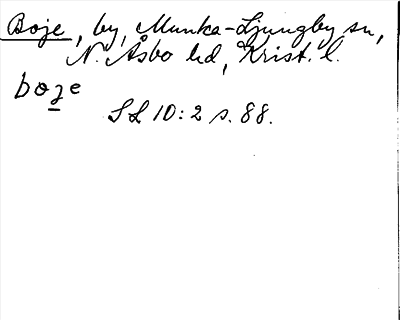 Boje, by, Munka-Ljungby sn,
N. Åsbo hd, Krist. l.
boje
SL 10:2 s. 88.